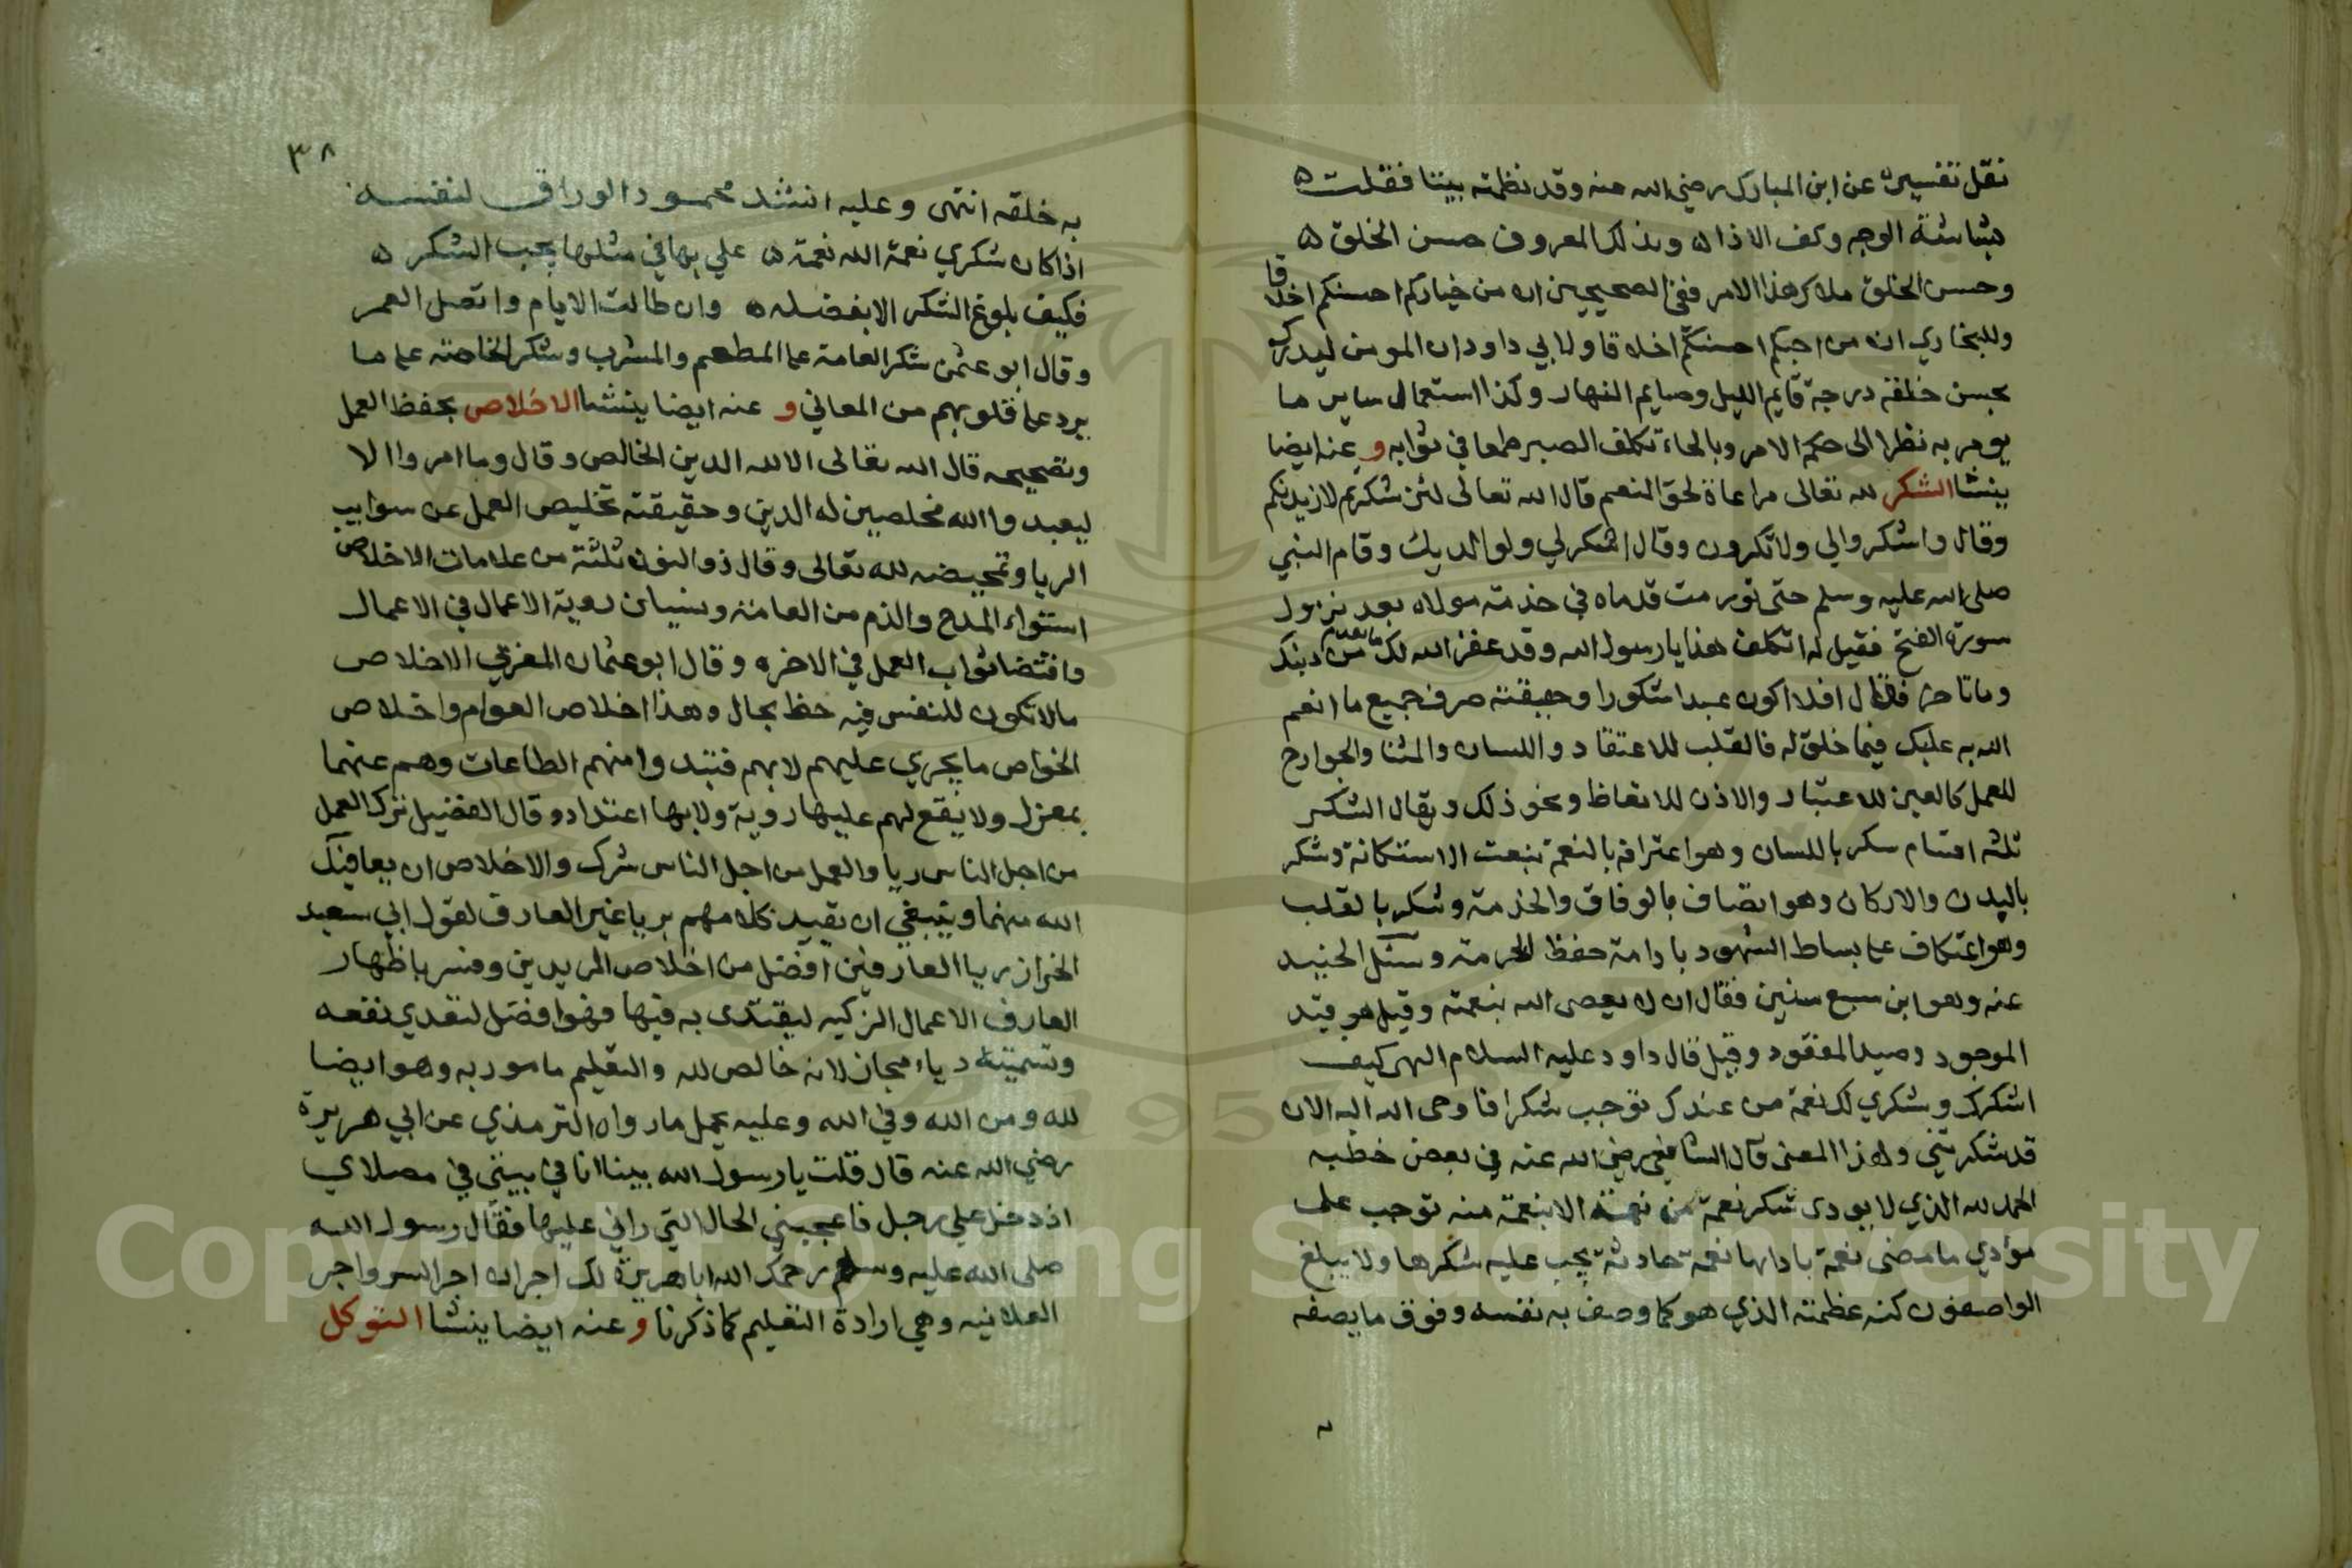 نقل تفسيره عن ابن المبارك رضي الله عنه وقد نظمته بيتا فقلت ه
بشاشة الوجه وكف الاذا ه وبذلك المعروف حسن الخلق ه
وحسن الخلق ملاك هذا الامر ففي الصحيحين ان من خياركم احسنكم اخلاقا
وللبخاري ان من احبكم احسنكم اخلاقا ولابي داود ان المومن ليدرك
بحسن خلقه درجة قايم الليل وصايم النهار وكذا استعمال ساير ما
يومر به نظرا الى حكم الامر وبالحاء تكلف الصبر طمعا في ثوابه و عنه ايضا
ينشا الشكر لله تعالى مراعاة لحق النعم قال الله تعالى لئن شكرتم لازيدنكم
وقال واشكروا لي ولا تكفرون وقال اشكر لي ولوالديك وقام النبي
صلى الله عليه وسلم حتى تورمت قدماه في خدمة مولاه بعد نزول
سورة الفتح فقيل له اتكلف هذا يا رسول الله وقد غفر الله لك ما تقدم من ذنبك
وما تاخر فقال افلا اكون عبدا شكورا وحقيقته صرف جميع ما انعم
الله به عليك فيما خلق له فالقلب للاعتقاد واللسان والثنا والجوارح
للعمل كالعين للاعتبار والاذن للاتعاظ ونحو ذلك ويقال الشكر
ثلثه اقسام سكر باللسان وهو اعترافه بالنعمة بنعت الاستكانة وشكر
بالبدن والاركان وهو اتصاف بالوفاق والخدمة وشكر بالقلب
وهو اعتكاف على بساط الشهود بادامة حفظ الحرمة وسئل الجنيد
عنه وهو ابن سبع سنين فقال ان لا يعصى الله بنعمته وقيل هو قيد
الموجود وصيد المفقود وقيل قال داود عليه السلام الهى كيف
اشكرك وشكري لك نعمة من عندك توجب شكرا فاوحى الله اليه الان
قد شكرتني ولهذا المعنى قال الشافعي رضي الله عنه في بعض خطبه
الحمد لله الذي لا يودى شكر نعمة من نعمه الا بنعمة منه توجب على
مؤدي ما مضى نعمة بادايها نعمة حادثة يجب عليه شكرها ولا يبلغ
الواصفون كنه عظمته الذي هو كما وصف به نفسه وفوق ما يصفه
٣٨
به خلقه انتهى وعليه انشد محمود الوراق لنفسه
اذا كان شكري نعمة الله نعمة ه علي بها في مثلها يجب الشكر ه
فكيف بلوغ الشكر الا بفضله ه وان طالت الايام واتصل العمر
وقال ابو عثمن شكر العامة على المطعم والمشرب وشكر الخاصة على ما
يرد على قلوبهم من المعاني و عنه ايضا ينشا الاخلاص بحفظ العمل
وتصحيحه قال الله تعالى الا لله الدين الخالص وقال وما امروا الا
ليعبدوا الله مخلصين له الدين وحقيقته تخليص العمل عن سوايب
الريا وتمحيضه لله تعالى وقال ذو النون ثلثة من علامات الاخلاص
استواء المدح والذم من العامة ونسيان روية الاعمال في الاعمال
واقتضا ثواب العمل في الاخره وقال ابو عثمان المغربي الاخلاص
ما لا تكون للنفس فيه حظ بحال وهذا اخلاص العوام واخلاص
الخواص ما يجري عليهم لا بهم فتبدوا منهم الطاعات وهم عنهما
بمعزل ولا يقع لهم عليها روية ولا بها اعتداد وقال الفضيل ترك العمل
من اجل الناس ريا والعمل من اجل الناس شرك والاخلاص ان يعافيك
الله منهما وينبغي ان يقيد كلامهم بريا غير العارف لقول ابي سعيد
الخراز ريا العارفين افضل من اخلاص المريدين وفسر باظهار
العارف الاعمال الزكيه ليقتدى به فيها فهو افضل لتعدي نفعه
وتسميته رياء مجاز لانه خالص لله والتعليم مامور به وهو ايضا
لله ومن الله وفي الله وعليه يحمل ما رواه الترمذي عن ابي هريرة
رضي الله عنه قال قلت يا رسول الله بينا انا في بيتي في مصلاي
اذ دخل علي رجل فاعجبني الحال التي راني عليها فقال رسول الله
صلى الله عليه وسلم رحمك الله ابا هريرة لك اجران اجر السر واجر
العلانيه وهي ارادة التعليم كما ذكرنا و عنه ايضا ينشا التوكل
Copyright © King Saud University